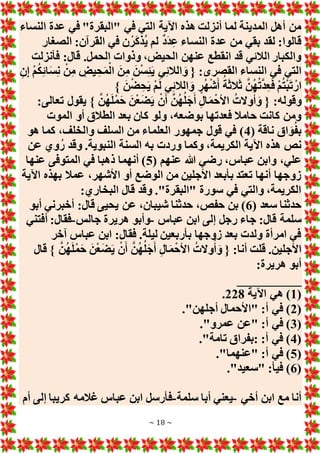 من أهل المدينة لما أنزلت هذه الآية التي في "البقرة" في عدة النساء
قالوا: لقد بقي من عدة النساء عِدَدٌ لم يُذْكَرْن في القرآن: الصغار
والكبار اللائي قد انقطع عنهن الحيض، وذوات الحمل. قال: فأنزلت
التي في النساء القصرى: { وَاللائِي يَئِسْنَ مِنَ الْمَحِيضِ مِنْ نِسَائِكُمْ إِنِ
ارْتَبْتُمْ فَعِدَّتُهُنَّ ثَلاثَةُ أَشْهُرٍ وَاللائِي لَمْ يَحِضْنَ }
وقوله: { وَأُولاتُ الأحْمَالِ أَجَلُهُنَّ أَنْ يَضَعْنَ حَمْلَهُنَّ } يقول تعالى:
ومن كانت حاملا فعدتها بوضعه، ولو كان بعد الطلاق أو الموت
بفُوَاق ناقة (4) في قول جمهور العلماء من السلف والخلف، كما هو
نص هذه الآية الكريمة، وكما وردت به السنة النبوية. وقد رُوي عن
علي، وابن عباس، رضي الله عنهم (5) أنهما ذهبا في المتوفى عنها
زوجها أنها تعتد بأبعد الأجلين من الوضع أو الأشهر، عملا بهذه الآية
الكريمة، والتي في سورة "البقرة". وقد قال البخاري:
حدثنا سعد (6) بن حفص، حدثنا شيبان، عن يحيى قال: أخبرني أبو
سلمة قال: جاء رجل إلى ابن عباس -وأبو هريرة جالس-فقال: أفتني
في امرأة ولدت بعد زوجها بأربعين ليلة. فقال: ابن عباس آخر
الأجلين. قلت أنا: { وَأُولاتُ الأحْمَالِ أَجَلُهُنَّ أَنْ يَضَعْنَ حَمْلَهُنَّ } قال
أبو هريرة:
(1) هي الآية 228.
(2) في أ: "الأحمال أجلهن".
(3) في أ: "عن عمرو".
(4) في أ: :بفراق تامة".
(5) في أ: "عنهما".
(6) فيأ: "سعيد".
أنا مع ابن أخي -يعني أبا سلمة-فأرسل ابن عباس غلامه كريبا إلى أم
~ 18 ~